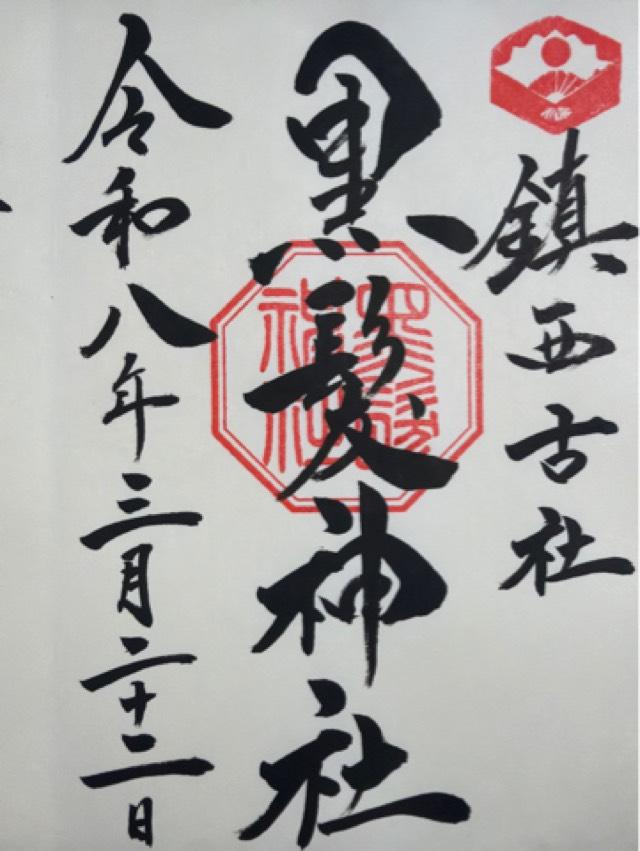 鎮西古社
黒髪神社
令和八年三月二十二日